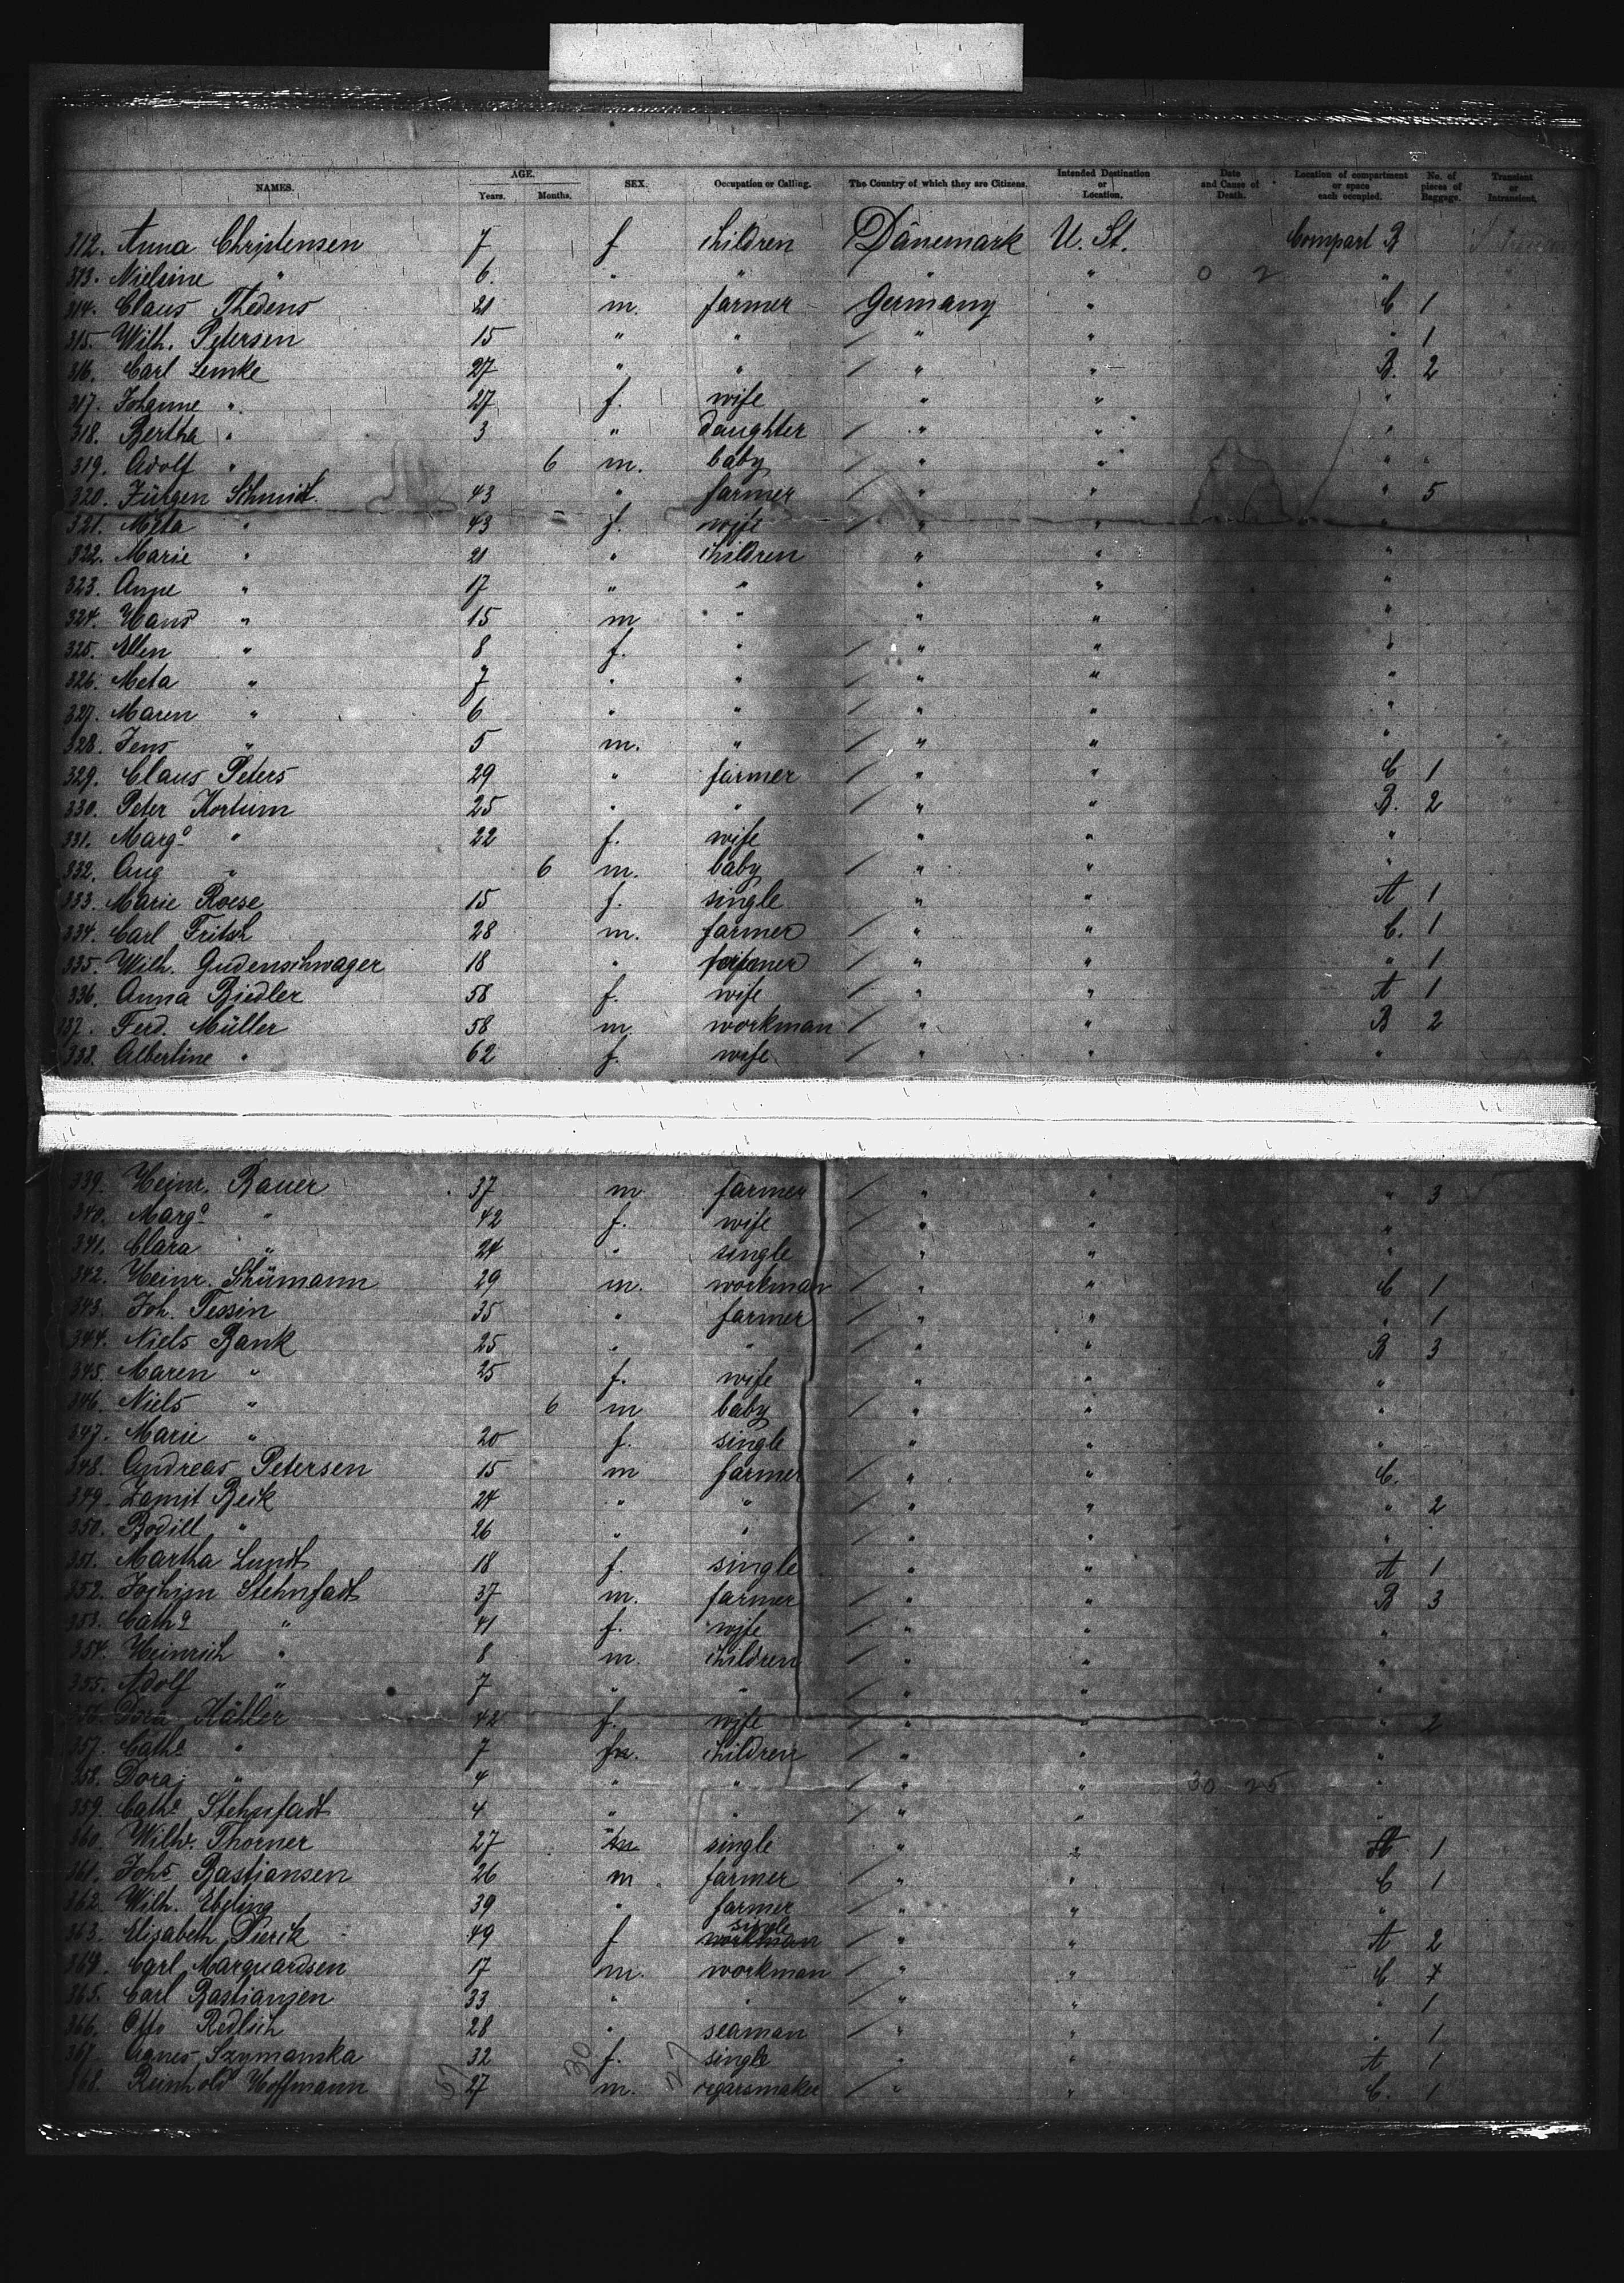 NAMES. AGE. Years. Months. SEX. Occupation or Calling. The Country of which they are Citizens. Intended Destination or Location. Date and Cause of Death. Location of compartment or space each occupied. No. of pieces of Baggage. Transient or Intransient.
312. Anna Christensen 7 f children Dänemark U. St. Compart B
313. Nielsine " 6. " " " " 0 2 "
314. Claus Thedens 21 m. farmer Germany " C 1
315. Wilh. Petersen 15 " " / " " " 1
316. Carl Lemke 27 " " / " " B. 2
317. Johanne " 27 f. wife " " "
318. Bertha " 3 " daughter / " " "
319. Adolf " 6 m. baby / " " "
320. Jürgen Schmidt 43 " farmer / " " " 5
321. Meta " 43 f. wife / " " "
322. Marie " 21 " children " " "
323. Anne " 17 " " " " "
324. Hans " 15 m " " " "
325. Ellen " 8 f. " / " " "
326. Meta " 7 " " / " " "
327. Maren " 6 " " / " " "
328. Jens " 5 m. " / " " "
329. Claus Peters 29 " farmer / " " C 1
330. Peter Kortum 25 " " / " " B. 2
331. Marg.a " 22 f. wife " " "
332. Aug " 6 m. baby / " " "
333. Marie Roese 15 f. single " " A 1
334. Carl Fritsch 28 m. farmer / " " C. 1
335. Wilh. Gudenschwager 18 " farmer / " " " 1
336. Anna Biedler 58 f. wife / " " A 1
337. Ferd. Müller 58 m. workman / " " B 2
338. Albertine " 62 f. wife / " " "
339. Heinr. Bauer 37 m farmer / " " " 3
340. Marg.a " 42 f. wife / " " "
341. Clara " 24 " single " " "
342. Heinr. Schümann 29 m. workman / " " C 1
343. Joh. Tessin 35 " farmer / " " " 1
344. Niels Bank 25 " " / " " B 3
345. Maren " 25 f. wife " " "
346. Niels " 6 m baby / " " "
347. Marie " 20 f. single " " "
348. Andreas Petersen 15 m farmer / " " C.
349. Zamit Beik 24 " " / " " " 2
350. Bodill " 26 " " / " " "
351. Martha Lundt 18 f. single " " A 1
352. Jochim Stehnfadt 37 m. farmer / " " B 3
353. Cath.a " 41 f. wife / " " "
354. Heinrich " 8 m. children / " " "
355. Adolf " 7 " " / " " "
356. Dora Kähler 42 f. wife / " " " 2
357. Cath.a " 7 children / " " "
358. Dora " 4 " " / " " 30 25 "
359. Cath.a Stehnfadt 4 " " / " " "
360. Thorner 27 single " " A 1
361. Johs Bastiansen 26 m farmer / " " C 1
362. Wilh. Ebeling 39 " farmer / " " "
363. Elisabeth Dierik 49 f single workman / " " A 2
364. Carl Marquardsen 17 m. workman / " " C
365. Carl Bastiansen 33 " " / " " " 1
366. Otto Redlich 28 " seaman / " " " 1
367. Agnes Szymanska 32 f. single " " A 1
368. Reinhold Hoffmann 27 m. cigarsmaker / " " C. 1